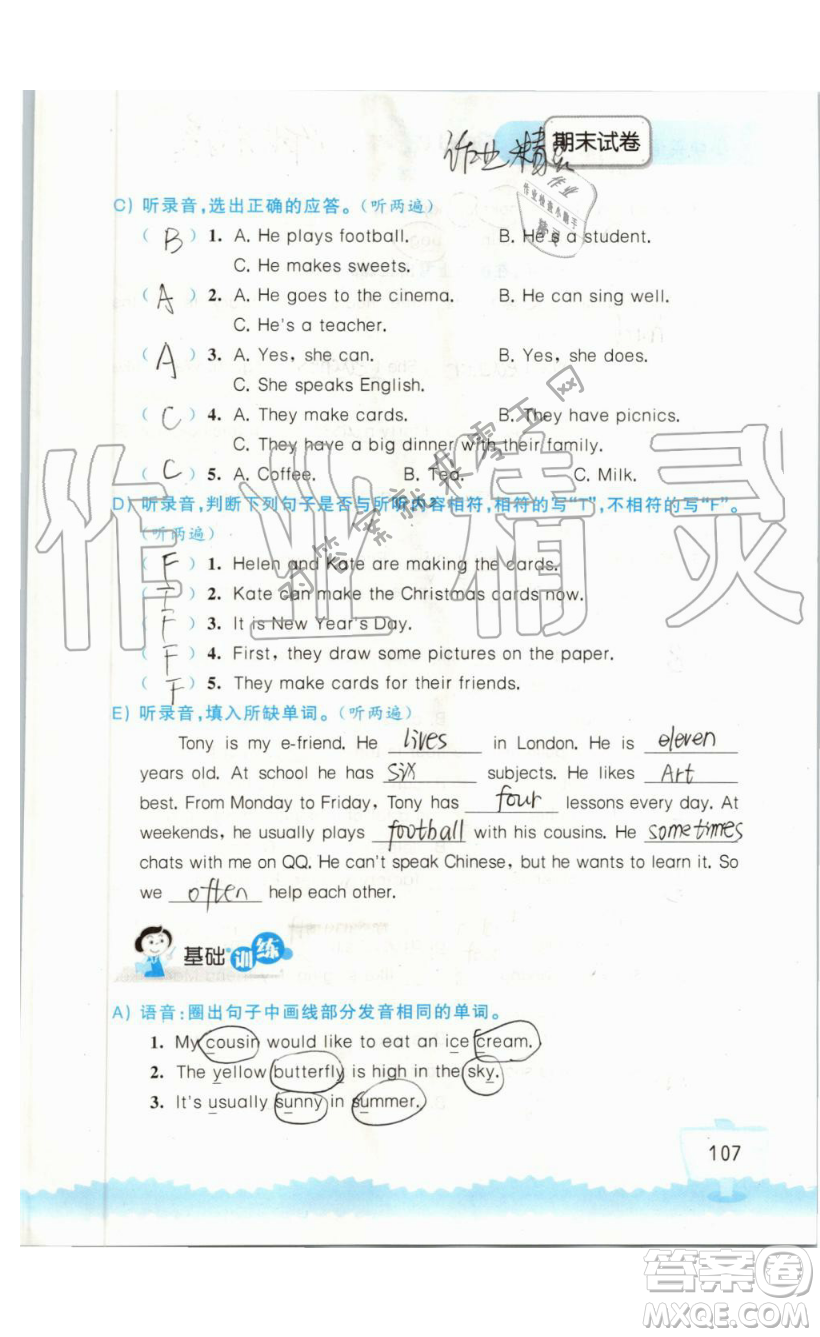 作业精灵
期末试卷
作业
作业检查小助手
精灵
C) 听录音,选出正确的应答。(听两遍)
( B ) 1. A. He plays football. B. He's a student.
C. He makes sweets.
( A ) 2. A. He goes to the cinema. B. He can sing well.
C. He's a teacher.
( A ) 3. A. Yes, she can. B. Yes, she does.
C. She speaks English.
( C ) 4. A. They make cards. B. They have picnics.
C. They have a big dinner with their family.
( C ) 5. A. Coffee. B. Tea. C. Milk.
D) 听录音,判断下列句子是否与所听内容相符,相符的写“T”,不相符的写“F”。
(听两遍)
( F ) 1. Helen and Kate are making the cards.
( T ) 2. Kate can make the Christmas cards now.
( F ) 3. It is New Year's Day.
( F ) 4. First, they draw some pictures on the paper.
( F ) 5. They make cards for their friends.
E) 听录音,填入所缺单词。(听两遍)
Tony is my e-friend. He lives in London. He is eleven
years old. At school he has six subjects. He likes Art
best. From Monday to Friday, Tony has four lessons every day. At
weekends, he usually plays football with his cousins. He sometimes
chats with me on QQ. He can't speak Chinese, but he wants to learn it. So
we often help each other.
基础训练
A) 语音:圈出句子中画线部分发音相同的单词。
1. My cousin would like to eat an ice cream.
2. The yellow butterfly is high in the sky.
3. It's usually sunny in summer.
107
作业精灵
找答案就来零五网
答案卷
MXQE.COM